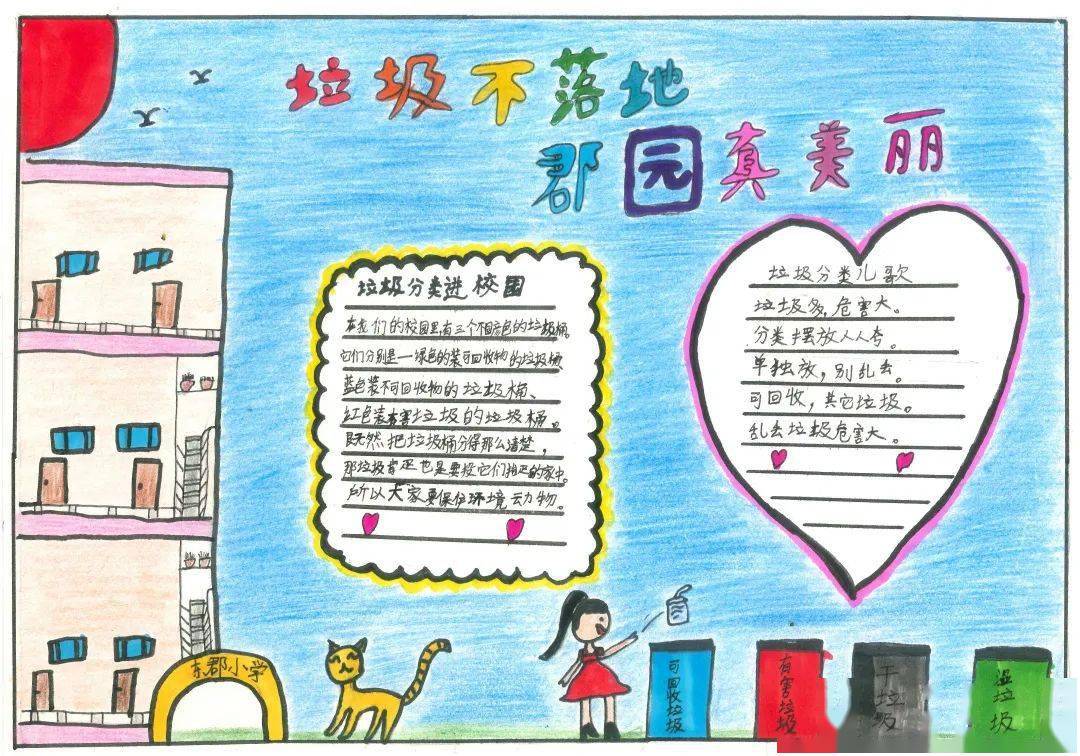 垃圾不落地
郡园真美丽
垃圾分类进校园
在我们的校园里有三个不同颜色的垃圾桶。
它们分别是一绿色的装可回收物的垃圾桶
蓝色装不可回收物的垃圾桶、
红色装有害垃圾的垃圾桶。
既然把垃圾桶分得那么清楚，
那垃圾肯定也是要投它们指定的家中。
所以大家要保住环境动物。
垃圾分类儿歌
垃圾多，危害大。
分类摆放人人夸。
单独放，别乱丢。
可回收，其它垃圾。
乱丢垃圾危害大。
东郡小学
可回收垃圾
有害垃圾
干垃圾
湿垃圾